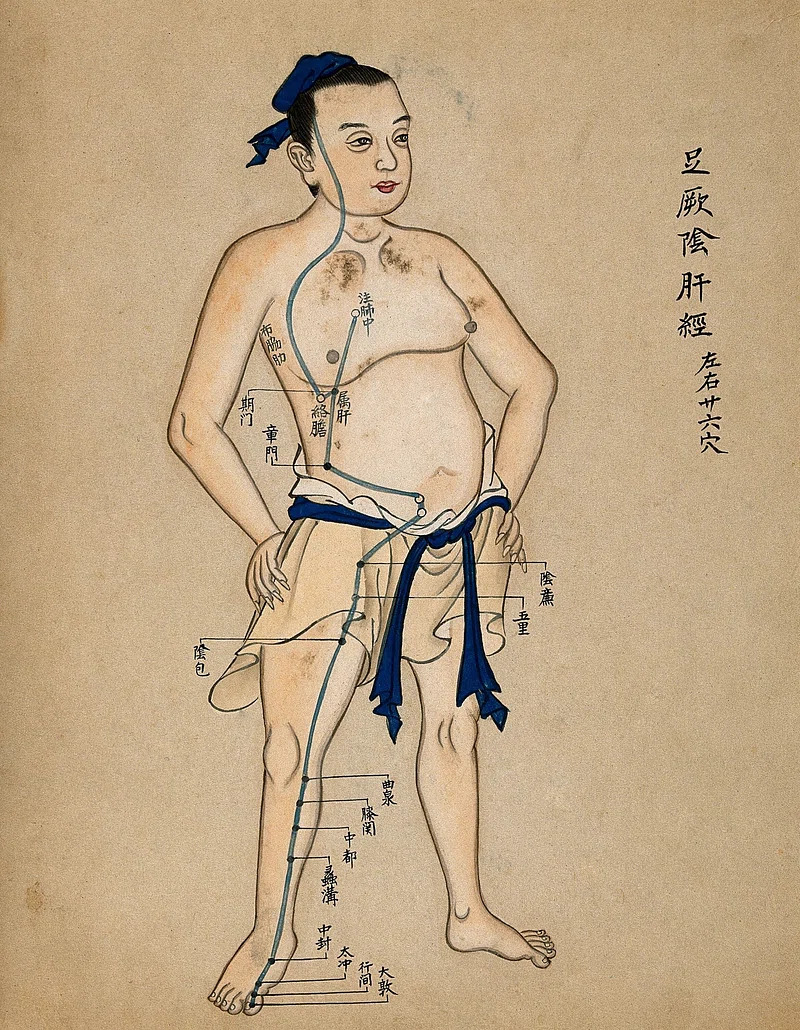 足厥陰肝經
左右廿六穴
注肺中
布脇肋
属肝
絡膽
期门
章門
陰廉
五里
陰包
曲泉
膝関
中都
蠡溝
中封
太冲
行间
大敦